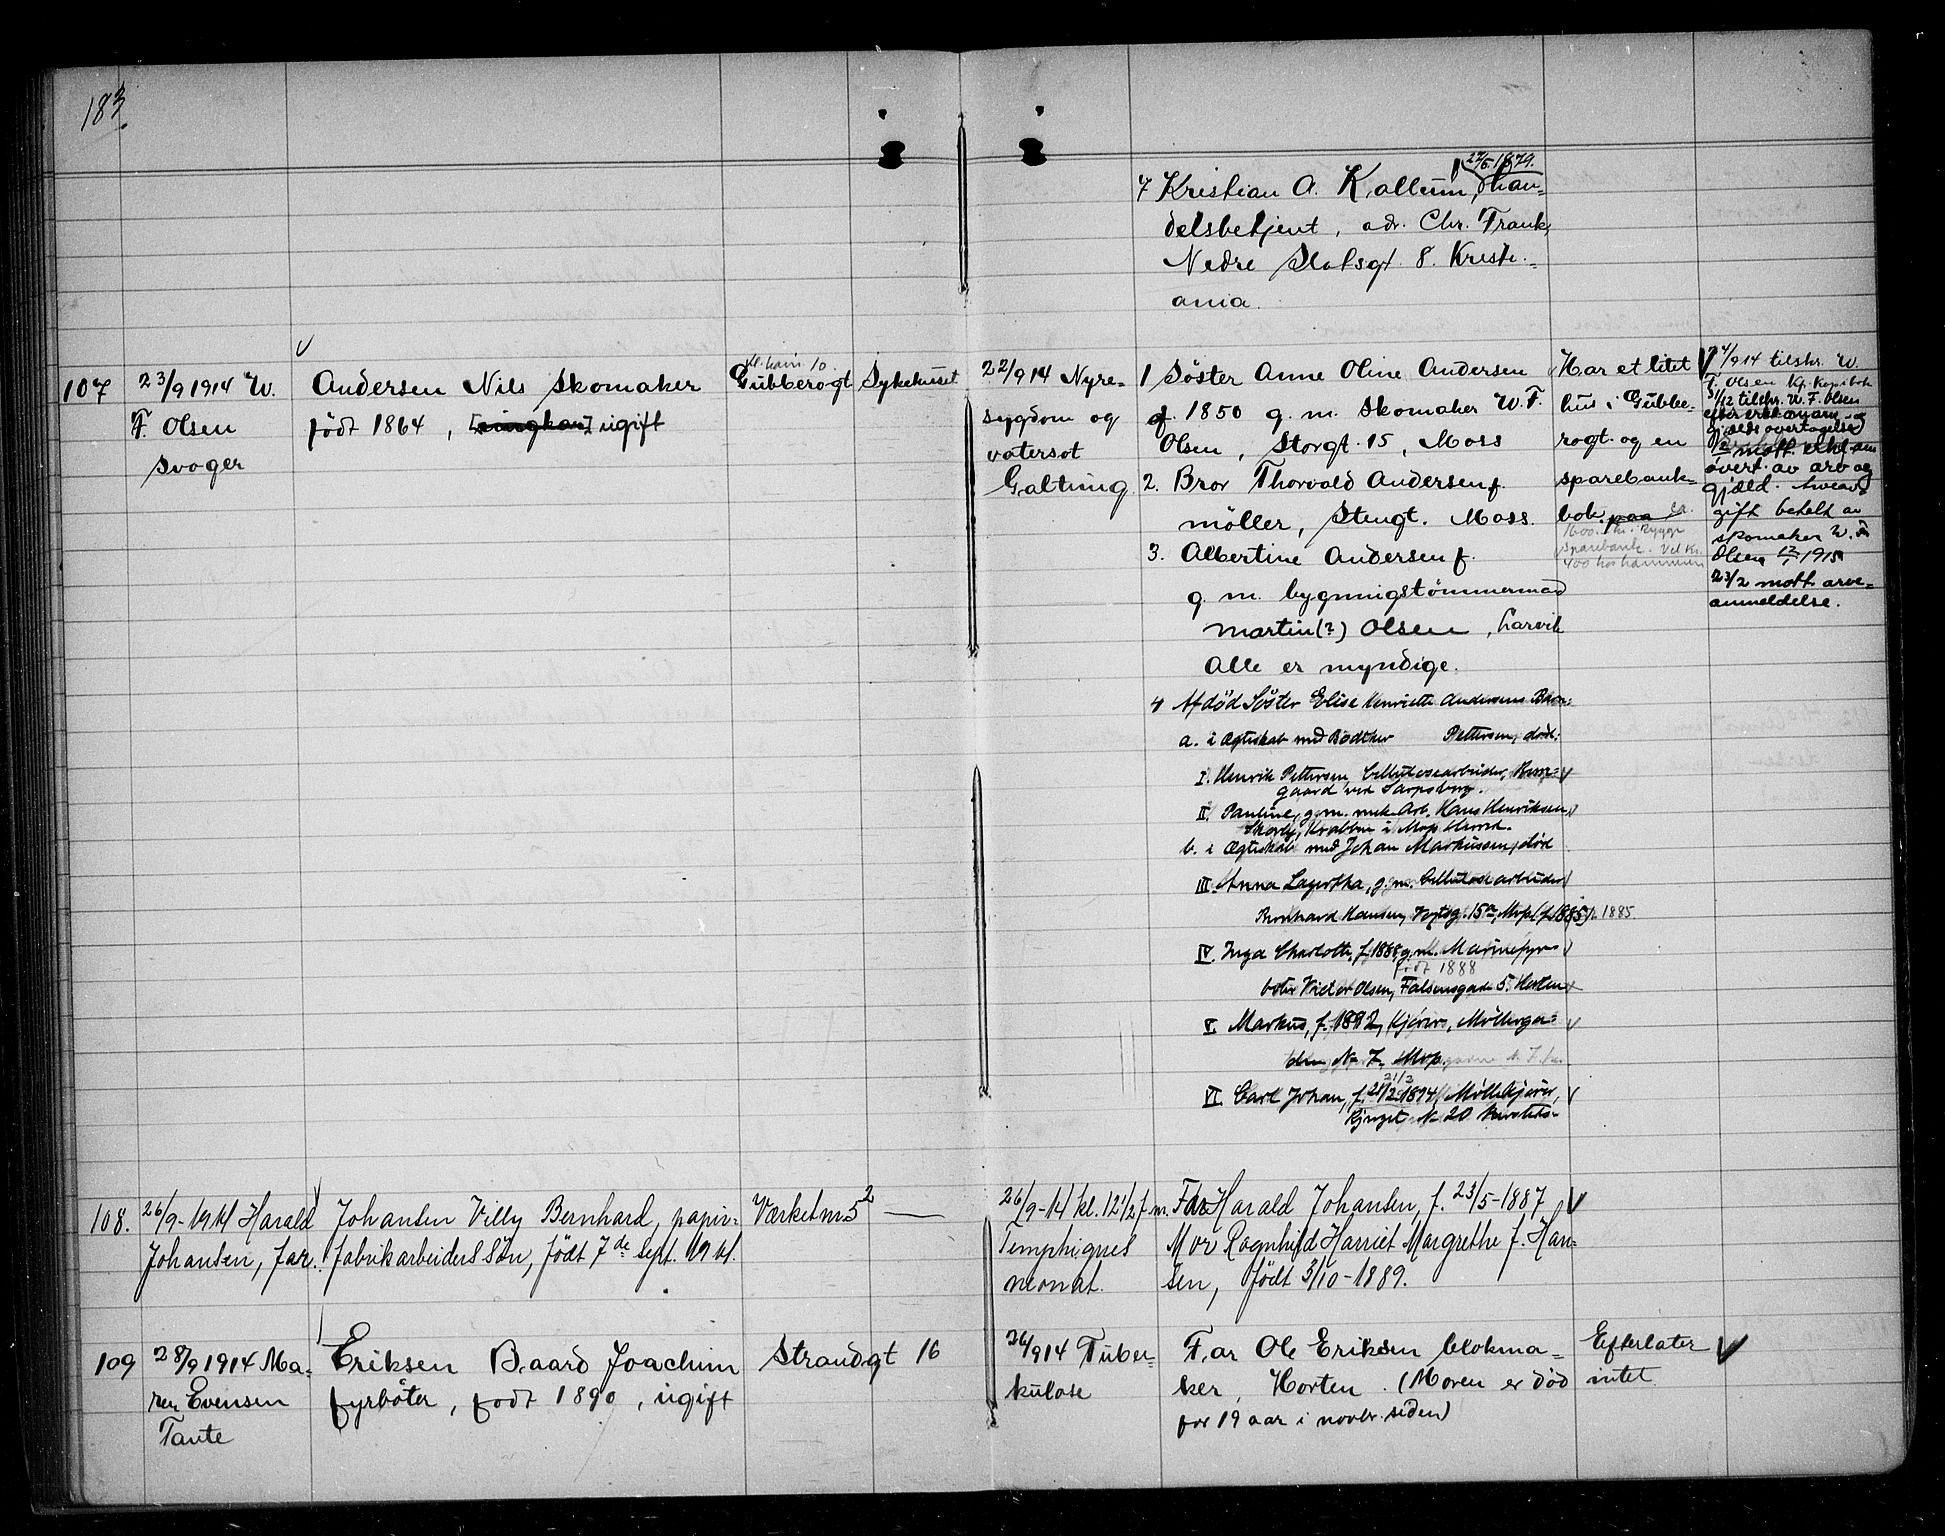 183.
7 Kristian A. Kallum, han-
27/5 1879.
delsbetjent, adr. Chr. Frank,
Nedre Slotsgt. 8. Kristi-
ania.
107
23/9 1914 W.
F. Olsen
Svoger
Andersen Nils Skomaker
født 1864, ugift
Gubberogt
Sykehuset
22/9 14 Nyre-
sygdom og
vatersot
Galtung
1 Søster Anne Oline Andersen
f. 1850 g. m. Skomaker W. F.
Olsen, Storgt. 15, Moss
2. Bror Thorvald Andersen f.
møller, Stengt. Moss.
3. Albertine Andersen f.
g. m. bygningstømmermand
Martin(?) Olsen, Larvik
Alle er myndige.
4 Afdød Søster Elise Henriette Andersens Børn:
a. i Ægteskab med Bødtker Pettersen, død:
I. Henrik Pettersen, Cellulosearbeider,
gaard ved Sarpsborg.
II. Pauline, g. m. mek. Arb. Hans Henriksen,
Krabben i Moss
b. i Ægteskab med Johan Markussen, død
III. Anna Lagertha, g. m. Cellulosearbeider
Bernhard Hansen, 15 Moss (f. 1885) f. 1885
IV. Inga Charlotte, f. 1888, g. m. Marinefyr-
født 1888
bøter Victor Olsen, Falsensgade 5. Horten
V. Markus, f. 1892, Kjører, Møllerga-
den No 7. Moss.
21/2
VI. Carl Johan, f. 21/2 1874 Møllekjører,
No 20
Har et litet
hus i Gubbe-
rogt. og en
sparebank-
bok. paa ca.
1600 kr. i Rygge
Sparebank. Vel kr.
400 hos
24/9 14 tilskr. W.
F. Olsen Kr. Kopibok
tilskr. W. F. Olsen
gjældsovertagelse
mott. erkl. om
overt. av arv og
gjæld.
gift betalt av
skomaker W. F.
Olsen 1915
23/2 mott. arve-
anmeldelse.
108.
26/9-1914 Harald
Johansen, far.
Johansen Villy Bernhard, papir-
fabrikarbeiders søn, født 7de sept. 1914.
Værket nr. 52 —
26/9-14 kl. 12 1/2 f.m.
Temphigues
neonat.
Far Harald Johansen, f. 23/5-1887
Mor Ragnhild Harriet Margrethe f. Han-
sen, født 3/10-1889.
109
28/9 1914 Ma-
ren Evensen
Tante
Eriksen Baard Joachim
fyrbøter, født 1890, ugift
Strandgt 16
26/9 14 Tuber-
kulose
Far Ole Eriksen blokma-
ker, Horten. (Moren er død
for 19 aar i novbr. siden)
Efterlater
intet